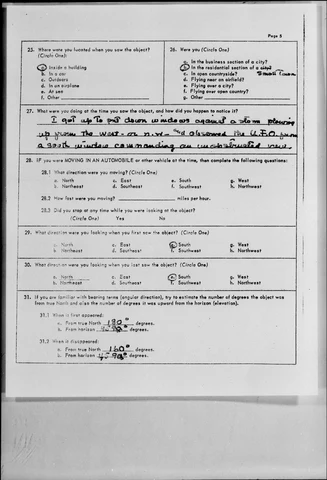 Page 5
25. Where were you located when you saw the object?
(Circle One):
a. Inside a building
b. In a car
c. Outdoors
d. In an airplane
e. At sea
f. Other
26. Were you (Circle One)
a. In the business section of a city?
b. In the residential section of a city?
Small Town
c. In open countryside?
d. Flying near an airfield?
e. Flying over a city?
f. Flying over open country?
g. Other
27. What were you doing at the time you saw the object, and how did you happen to notice it?
I got up to put down windows against a storm
up from the west - or n.w. and observed the U.F.O. from
a south window commanding an unobstructed view.
28. IF you were MOVING IN AN AUTOMOBILE or other vehicle at the time, then complete the following questions:
28.1 What direction were you moving? (Circle One)
a. North c. East e. South g. West
b. Northeast d. Southeast f. Southwest h. Northwest
28.2 How fast were you moving? miles per hour.
28.3 Did you stop at any time while you were looking at the object?
(Circle One) Yes No
29. What direction were you looking when you first saw the object? (Circle One)
a. North c. East e. South g. West
b. Northeast d. Southeast f. Southwest h. Northwest
30. What direction were you looking when you last saw the object? (Circle One)
a. North c. East e. South g. West
b. Northeast d. Southeast f. Southwest h. Northwest
31. If you are familiar with bearing terms (angular direction), try to estimate the number of degrees the object was
from true North and also the number of degrees it was upward from the horizon (elevation).
31.1 When it first appeared:
a. From true North 180° degrees.
b. From horizon degrees.
31.2 When it disappeared:
a. From true North 160° degrees.
b. From horizon degrees.